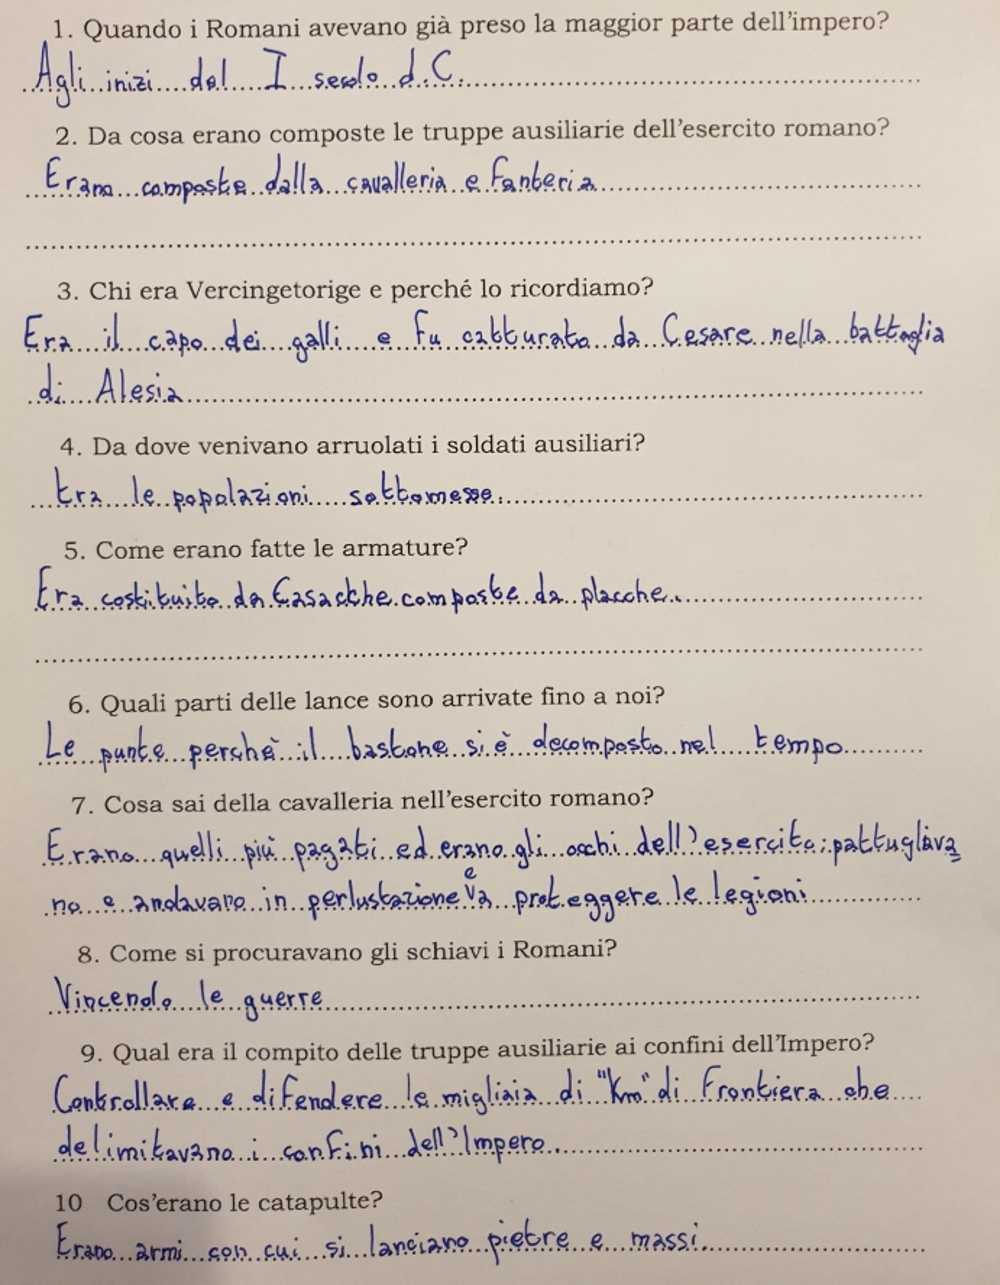 1. Quando i Romani avevano già preso la maggior parte dell'impero?
Agli inizi del I secolo d.C.
2. Da cosa erano composte le truppe ausiliarie dell'esercito romano?
Erano composte dalla cavalleria e fanteria
3. Chi era Vercingetorige e perché lo ricordiamo?
Era il capo dei galli e fu catturato da Cesare nella battaglia
di Alesia
4. Da dove venivano arruolati i soldati ausiliari?
tra le popolazioni sottomesse.
5. Come erano fatte le armature?
Era costituito da Casacche composte da placche.
6. Quali parti delle lance sono arrivate fino a noi?
Le punte perchè il bastone si è decomposto nel tempo
7. Cosa sai della cavalleria nell'esercito romano?
Erano quelli più pagati ed erano gli occhi dell'esercito; pattugliava
no e andavano in perlustrazione e a proteggere le legioni
8. Come si procuravano gli schiavi i Romani?
Vincendo le guerre
9. Qual era il compito delle truppe ausiliarie ai confini dell'Impero?
Controllare e difendere le migliaia di "Km" di frontiera che
delimitavano i confini dell'Impero.
10 Cos'erano le catapulte?
Erano armi con cui si lanciano pietre e massi.